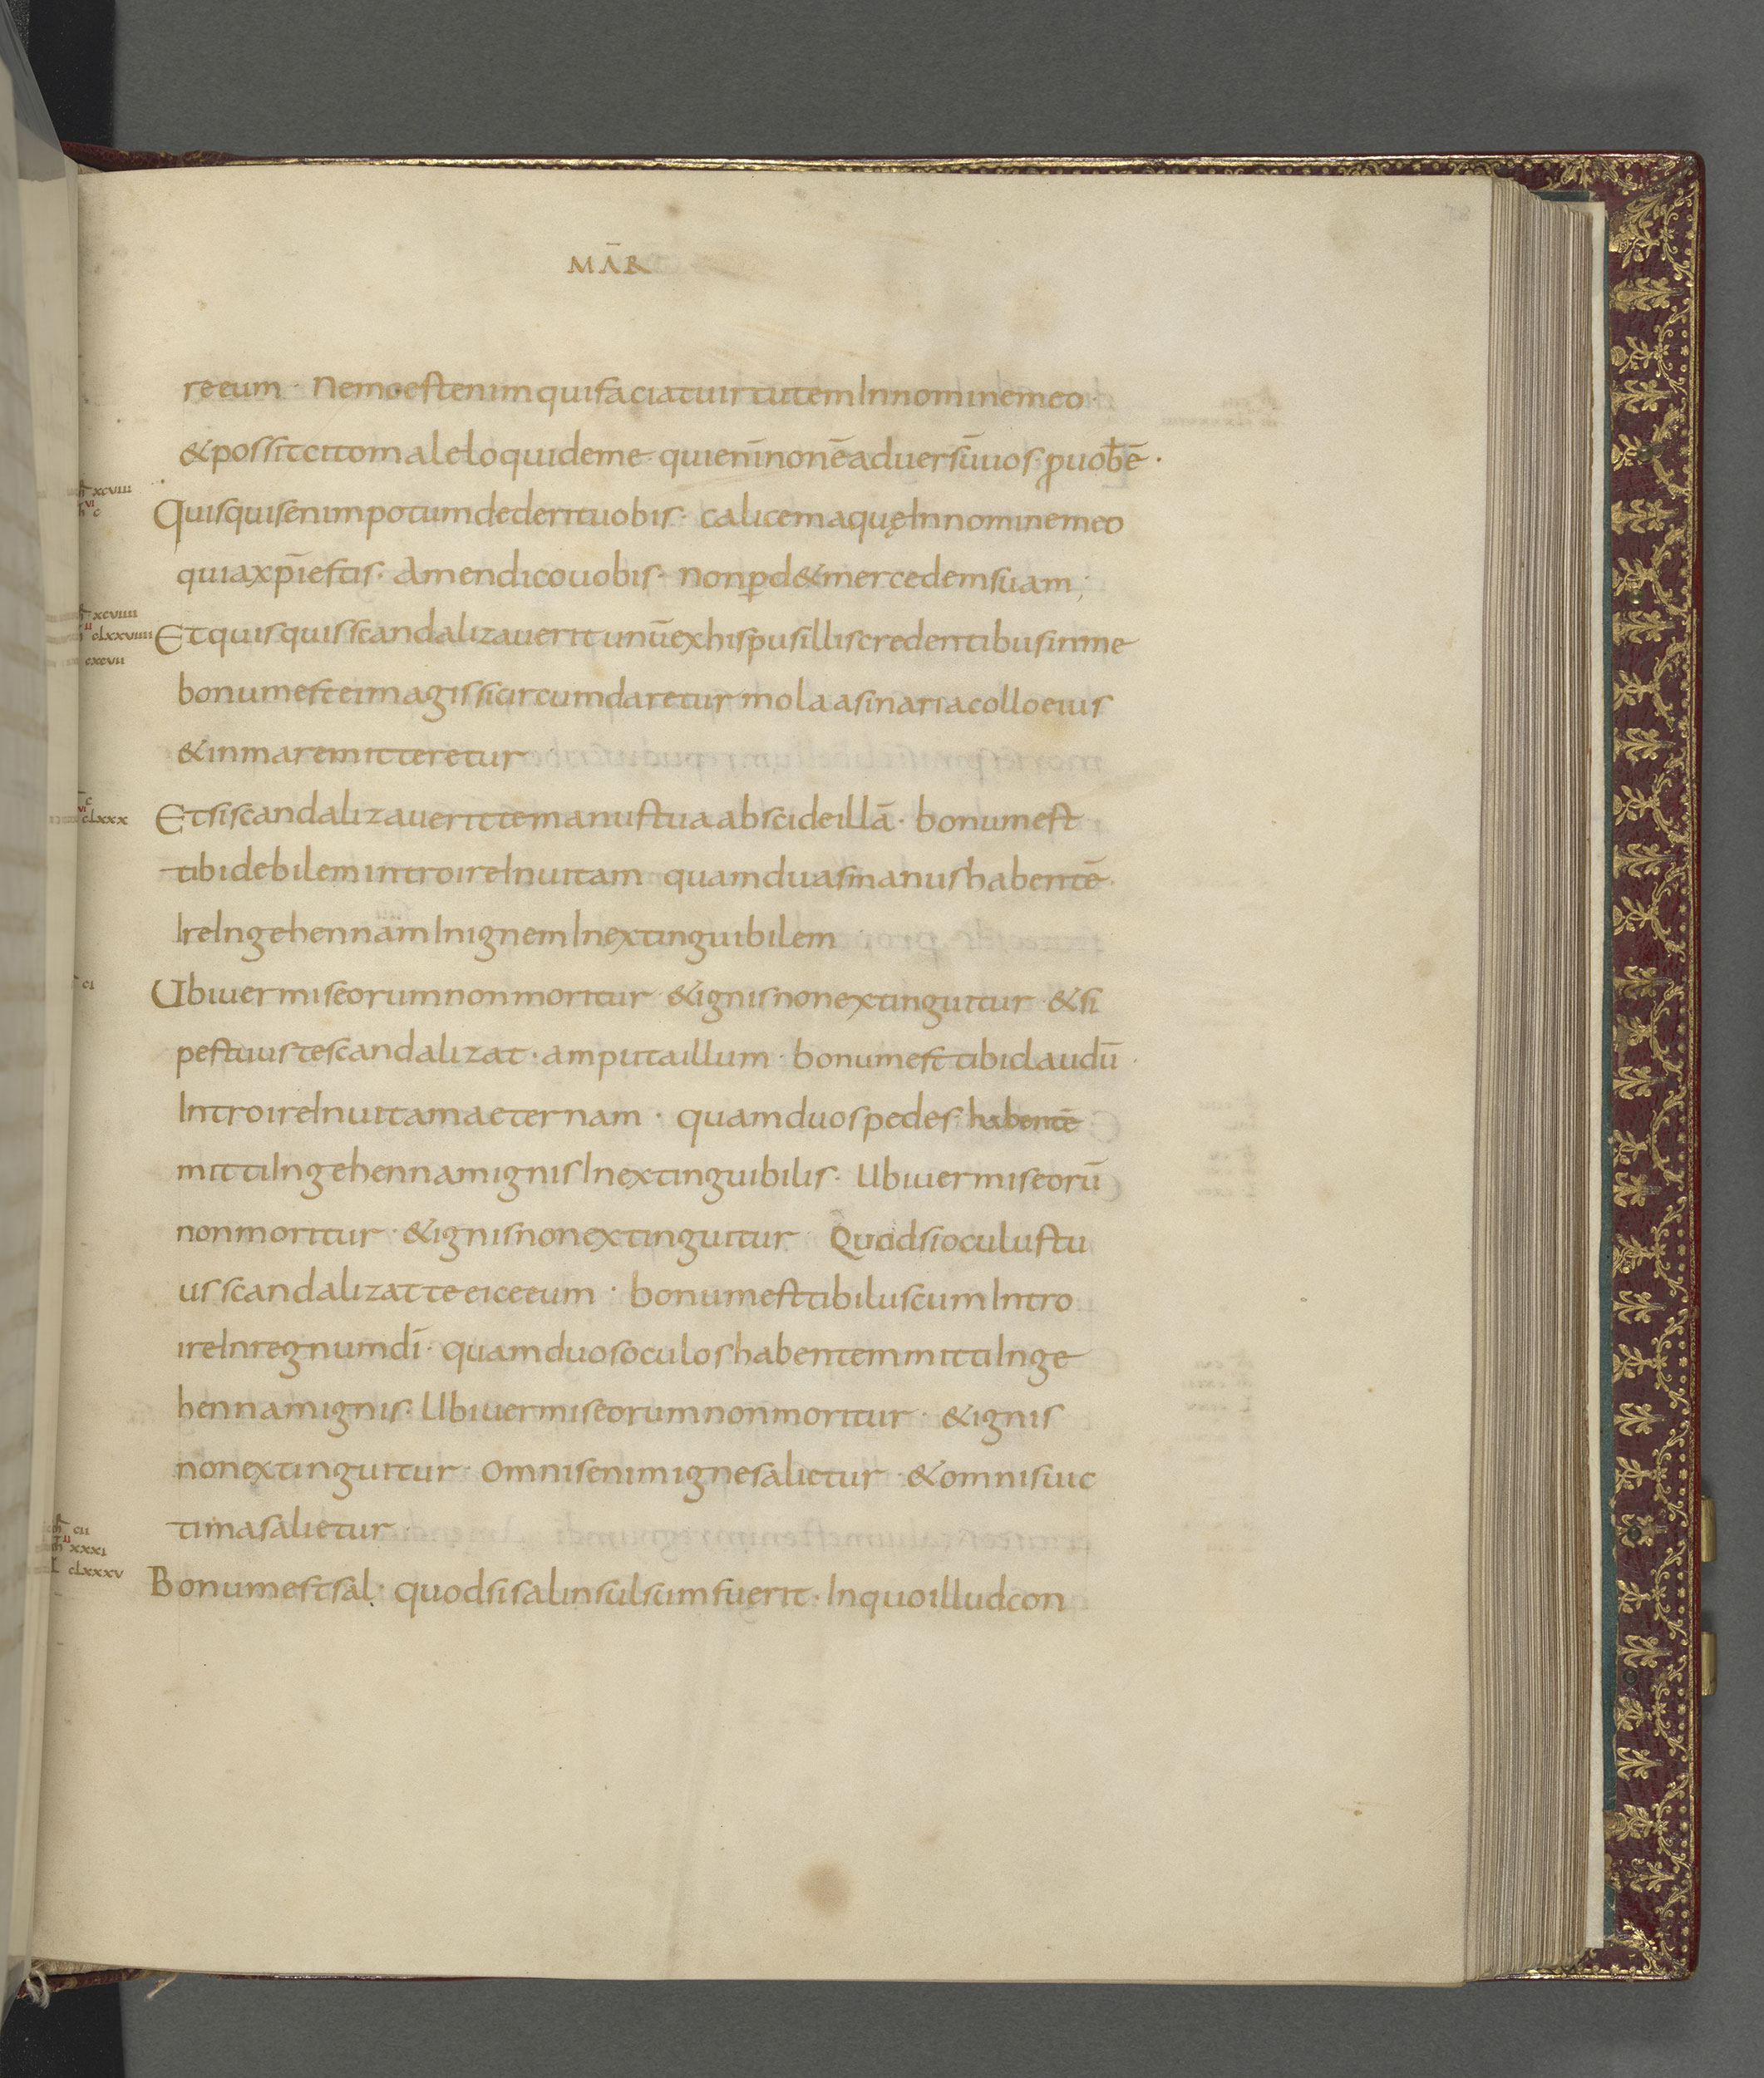 MĀR
reeum · Nemoestenimquifaciatuirtutem Innominemeo ·
&possitcitomaleloquideme · quienīnonēaduersūuos · ꝓuobē ·
xcviiii
vi
c
Quisquisenimpotumdederituobis · calicemaquęInnominemeo
quiaxp̄iestis · Amendicouobis · nonp̱d&mercedemsuam ;
xcviiii
ii
clxxviiii
cxcvii
Etquisquisscandalizaueritunūexhispusilliscredentibusinme
bonumesteimagissicircumdaretur molaasinariacolloeius
&inmaremitteretur
c
vi
clxxx
Etsiscandalizaueritte manustuaabscideillā · bonumest
tibidebilemintroireInuitam quamduasmanushabentē ·
IreIngehennam InignemInextinguibilem
ci
Ubiuermiseorumnonmoritur · &ignisnonextinguitur · &si
pestuustescandalizat · amputaillum · bonumesttibiclaudū ·
IntroireInuitamaeternam · quamduospedes habentē
mittiIngehennamignisInextinguibilis · Ubiuermiseorū
nonmoritur · &ignisnonextinguitur Quodsioculustu
usscandalizatteeiceeum · bonumesttibiluscumIntro
ireInregnumdī · quamduosoculoshabentemmittiInge
hennamignis · Ubiuermiseorumnonmoritur · &ignis
nonextinguitur · omnisenimignesalietur · &omnisuic
timasalietur ·
cii
ii
xxxi
clxxxv
Bonumestsal · quodsisalinsulsumfuerit · Inquoilludcon